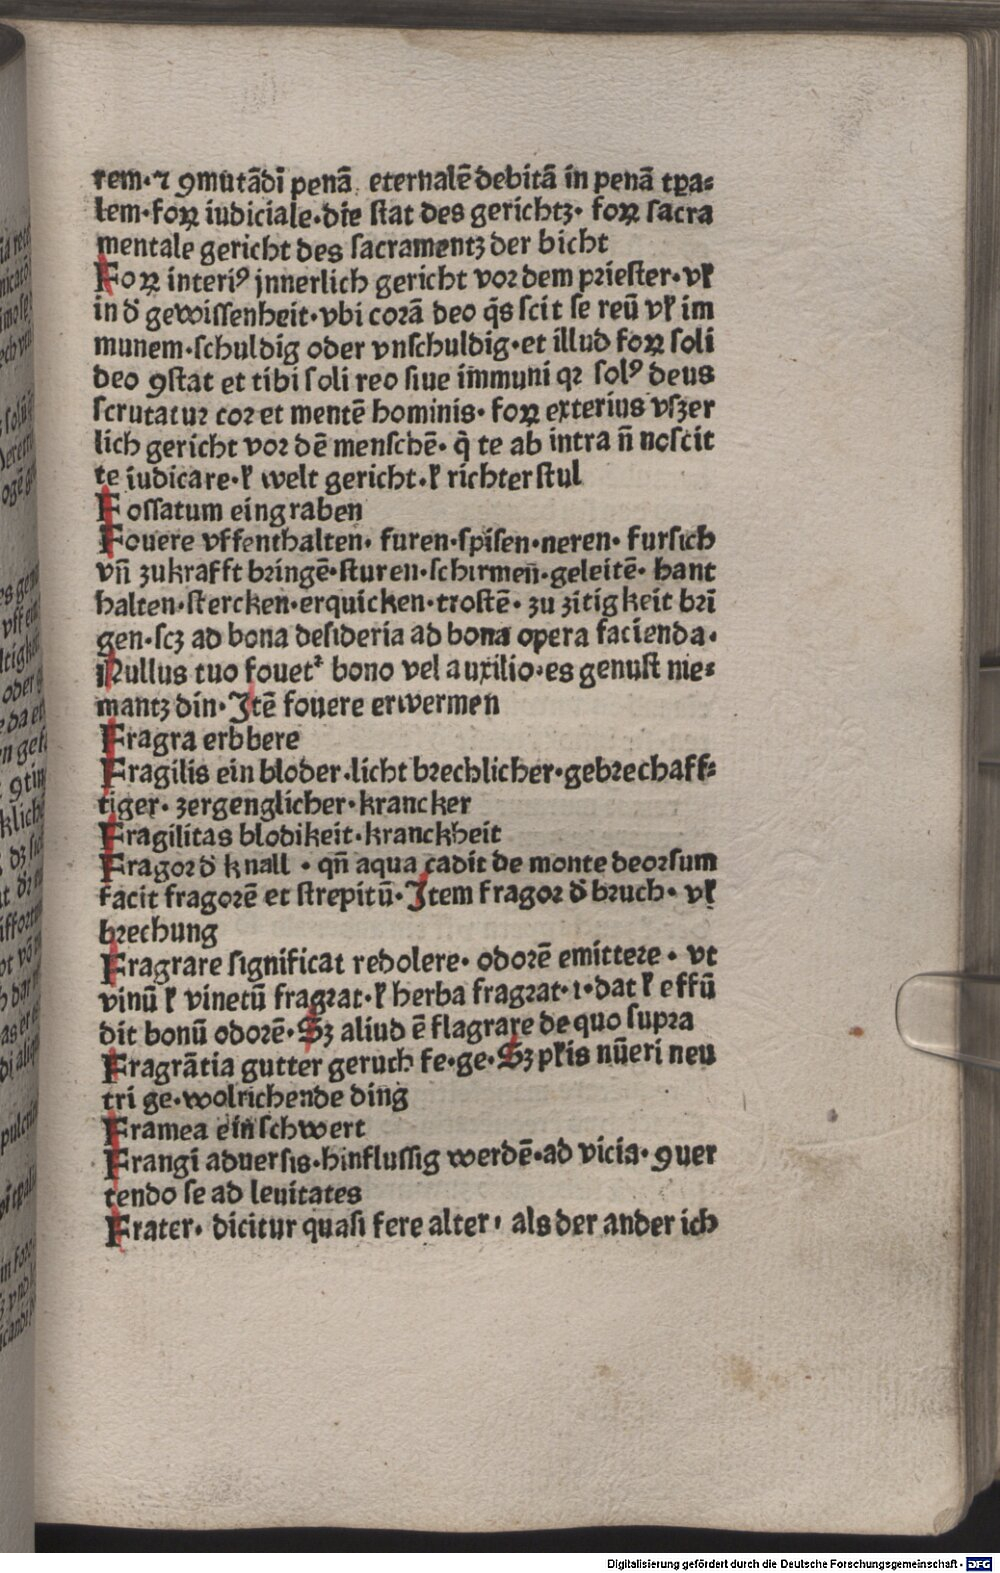 rem·⁊ ꝯmutādi penā eternalē debitā in penā tꝑa⸗
lem·foꝝ iudiciale·die ſtat des gerichtʒ· foꝝ ſacra
mentale gericht des ſacramentʒ der bicht
Foꝝ interiꝰ jnnerlich gericht vor dem prieſter·vꝉ
in d̕ gewiſſenheit·vbi corā deo q̄s ſcit ſe reū vꝉ im
munem·ſchuldig oder vnſchuldig·et illud foꝝ ſoli
deo ꝯſtat et tibi ſoli reo ſiue immuni qꝛ ſolꝰ deus
ſcrutatur cor et mentē hominis· foꝝ exterius vſʒer
lich gericht vor dē menſchē· q̄ te ab intra n̄ noſcit
te iudicare·ꝉ welt gericht·ꝉ richterſtul
Foſſatum ein graben
Fouere vffenthalten· furen·ſpiſen·neren· furſich
vn̄ zukrafft bringē·ſturen·ſchirmen̄·geleitē· hant
halten·ſtercken·erquicken·troſtē· zu zitigkeit brī
gen·ſcʒ ad bona deſideria ad bona opera facienda·
Nullus tuo fouetᷣ bono vel auxilio·es genuſt nie⸗
mantʒ din·Jtē fouere erwermen
Fragra erbbere
Fragilis ein bloder·licht brechlicher·gebrechaff⸗
tiger· zergenglicher·krancker
Fragilitas blodikeit·kranckheit
Fragor d̕ knall · qn̄ aqua cadit de monte deorſum
facit fragorē et ſtrepitū·Jtem fragor d̕ bruch· vꝉ
brechung
Fragrare ſignificat redolere· odorē emittere · vt
vinū ꝉ vinetū fragrat·ꝉ herba fragrat·ı·dat ꝉ effū
dit bonū odorē·Sʒ aliud ē flagrare de quo ſupra
Fragrātia gutter geruch fe·ge·Sʒ pꝉis nūeri neu
tri ge·wolrichende ding
Framea ein ſchwert
Frangi aduerſis·hinfluſſig werdē·ad vicia·ꝯuer
tendo ſe ad leuitates
Frater· dicitur quaſi fere alter, als der ander ich
Digitalisierung gefördert durch die Deutsche Forschungsgemeinschaft - DFG